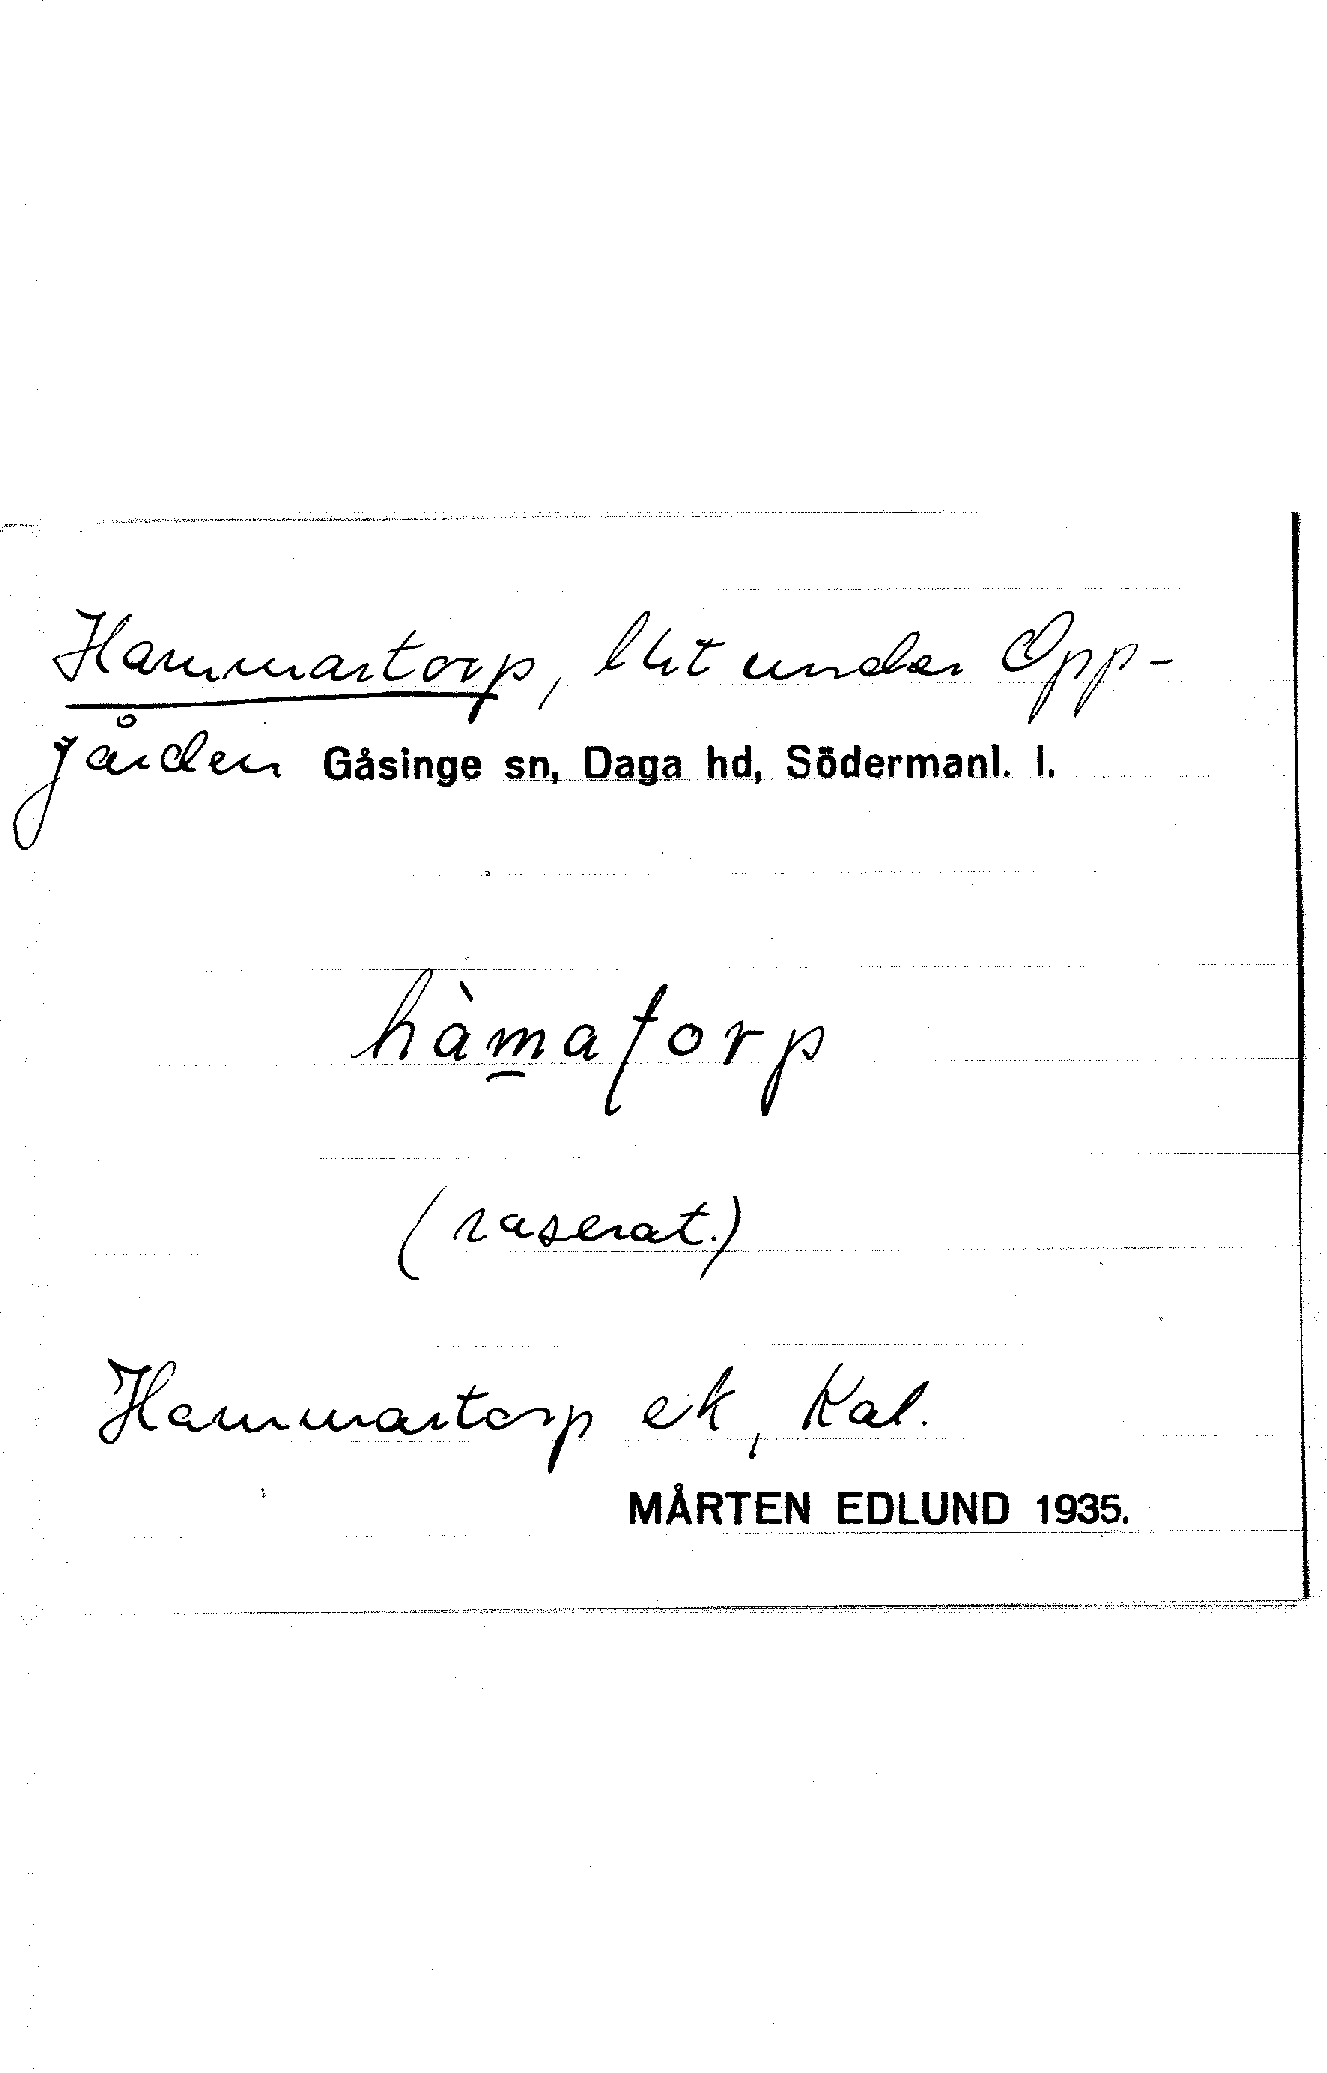 Hammartorp, lht under Opp-
gården Gåsinge sn, Daga hd, Södermanl. l.
hàm̲atorp
(raserat.)
Hammartorp ek, Kal.
MÅRTEN EDLUND 1935.